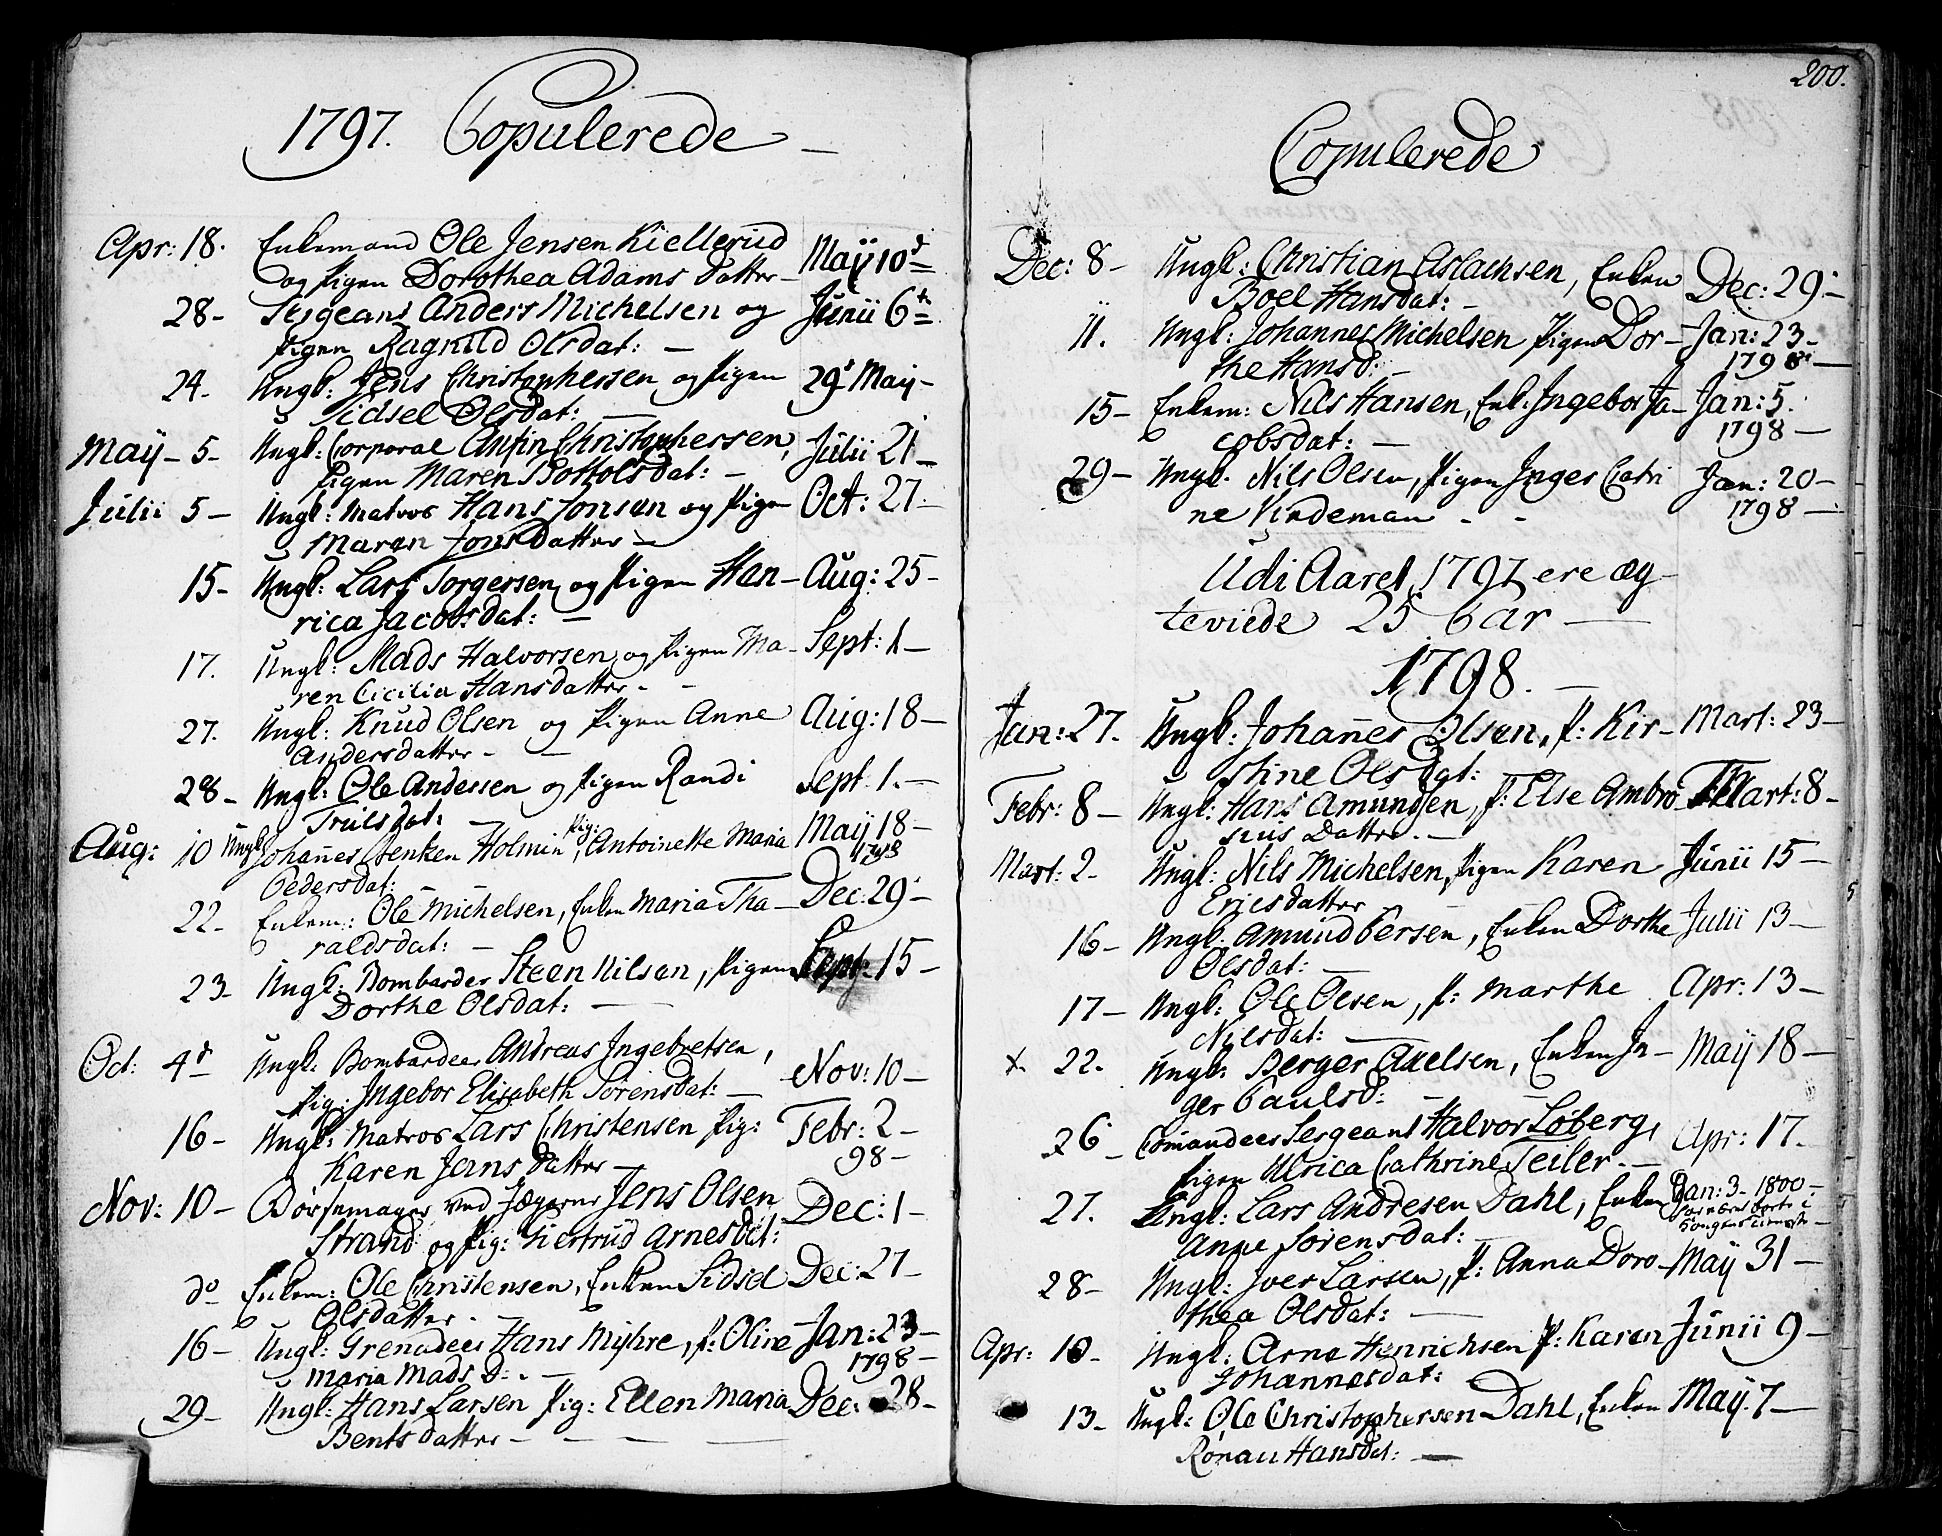 1797. Copulerede
Apr: 18. Enkemand Ole Jensen Kiellerud Maij 10d
og Pigen Dorothea Adams datter -
28- Sergeant Anders Michelsen og Junii 6te
Pigen Ragnild Olsdat: -
24. Ungk: Jens Christophersen og Pigen 29d Maij -
Sidsel Olsdat: -
Maij - 5- Ungk: Corporal Anfin Christophersen, Julii 21 -
Pigen Maren Botholsdat: -
Julii 5 - Ungk: Matros Hans Jonsen og Pigen Oct: 27-
Maren Jonsdatter -
15- Ungk: Lars Torgersen og Pigen Han- Aug: 25-
rica Jacobsdat: -
17. Ungk: Mads Halvorsen og Pigen Ma- Sept: 1 -
ren Cicilia Hansdatter - -
27. Ungk: Knud Olsen og Pigen Anne Aug: 18 -
Andersdatter - -
28- Ungk: Ole Andersen og Pigen Randi Sept 1. -
Truls dat: -
Aug: 10 Ungk: Johañes Holmin, Pig: Antoinette Maria Maij 18 -
Pedersdat: 1798
22- Enkem: Ole Michelsen, Enken Maria Tha- Dec: 29 -
raldsdat: -
23- Ungk: Bombarder Steen Nilsen, Pigen Sept: 15 -
Dorthe Olsdat: -
Oct: 4d Ungk: Bombardeer Andreas Ingebretsen, Nov: 10 -
Pig: Ingebor Elisabeth Sørensdat: -
16- Ungk: Matros Lars Christensen Pig: Febr: 2 -
Karen Jens datter - 98 -
Nov: 10 - Børsemager ved Jægerne Jens Olsen Dec: 1 -
Strand og Pig: Giertrud Arnesdat:
do Enkem: Ole Christensen, Enken Sidsel Dec: 27 -
Olsdatter -
16- Ungk: Grenadeer Hans Myhre, P: Oline Jan: 23-
Maria Mads D: - 1798 -
29- Ungk: Hans Larsen Pig: Ellen Maria Dec: 28-
Bentsdatter - - -
200.
Copulerede
Dec: 8- Ungk: Christian Aslachsen, Enken Dec: 29 -
Boel Hansdat: -
11. Ungk: Johannes Michelsen Pigen Dor- Jan: 23-
the Hansd: - 1798 -
15- Enkem: Nils Hansen, Enk: Ingebor Ja- Jan: 5.
cobsdat: - 1798 -
29- Ungk. Nils Olsen, Pigen Inger Catri Jan: 20 -
ne Kindeman - - 1798 -
Udi Aaret 1797 ere æg-
teviede 25 Par -
1798. -
Jan: 27. Ungk: Johañes Olsen, P: Kir- Mart: 23-
stine Olsdat:
Febr: 8- Ungk: Hans Amundsen, P: Else Ambro Mart: 8-
sius Datter. -
Mart: 2- Ungk: Nils Michelsen, Pigen Karen Junii 15 -
Ericsdatter
16- Ungk. Amund Persen, Enken Dorthe Julii 13 -
Olsdat: -
17- Ungk: Ole Olsen, P: Marthe Apr: 13 -
Nilsdat: -
x 22. Ungk: Berger Axelsen, Enken In- Maij 18 -
ger Paulsd: -
26- Comandeersergeant Halvor Løberg, Apr: 17.
Pigen Ulrica Cathrine Teiler. -
27. Ungk: Lars Andresen Dahl, Enken Jan: 3- 1800 -
Anne Sørensdat: -
28- Ungk: Iver Larsen, P: Anna Doro- Maij 31 -
thea Olsdat: -
Apr: 10- Ungk: Arne Henrichsen P: Karen Junii 9 -
Johannesdat:
13- Ungk: Ole Christophersen Dahl, Enken Maij 7 -
Ronau Hansdat: -